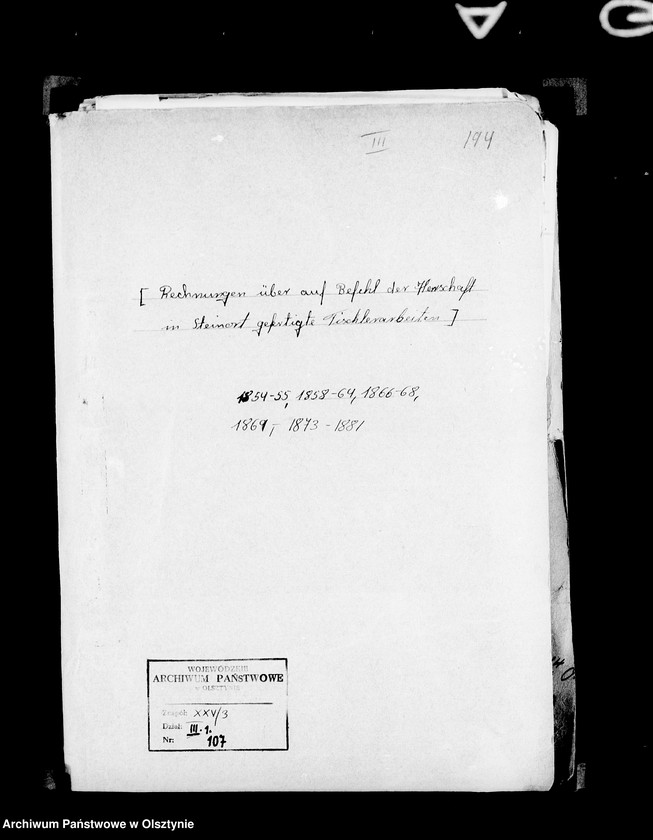 III
194
[ Rechnungen über auf Befehl der Herrschaft
in Steinort gefertigte Tischlerarbeiten ]
1854-55, 1858-64, 1866-68,
1869, - 1873 - 1881
WOJEWÓDZKIE
ARCHIWUM PAŃSTWOWE
w OLSZTYNIE
Zespół: XXV/3
Dział: III.1.
Nr: 107
Archiwum Państwowe w Olsztynie